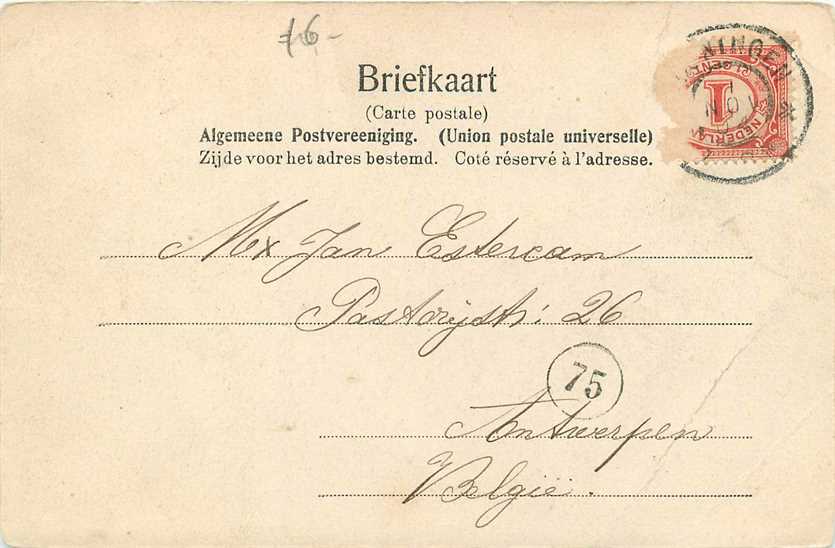 /6-
Briefkaart
(Carte postale)
Algemeene Postvereeniging. (Union postale universelle)
Zijde voor het adres bestemd. Coté réservé à l'adresse.
NINGEN
NOV
1
NEDERLA
Mx Jan Estercam
Pastorijstr: 26
75
Antwerpen
België.